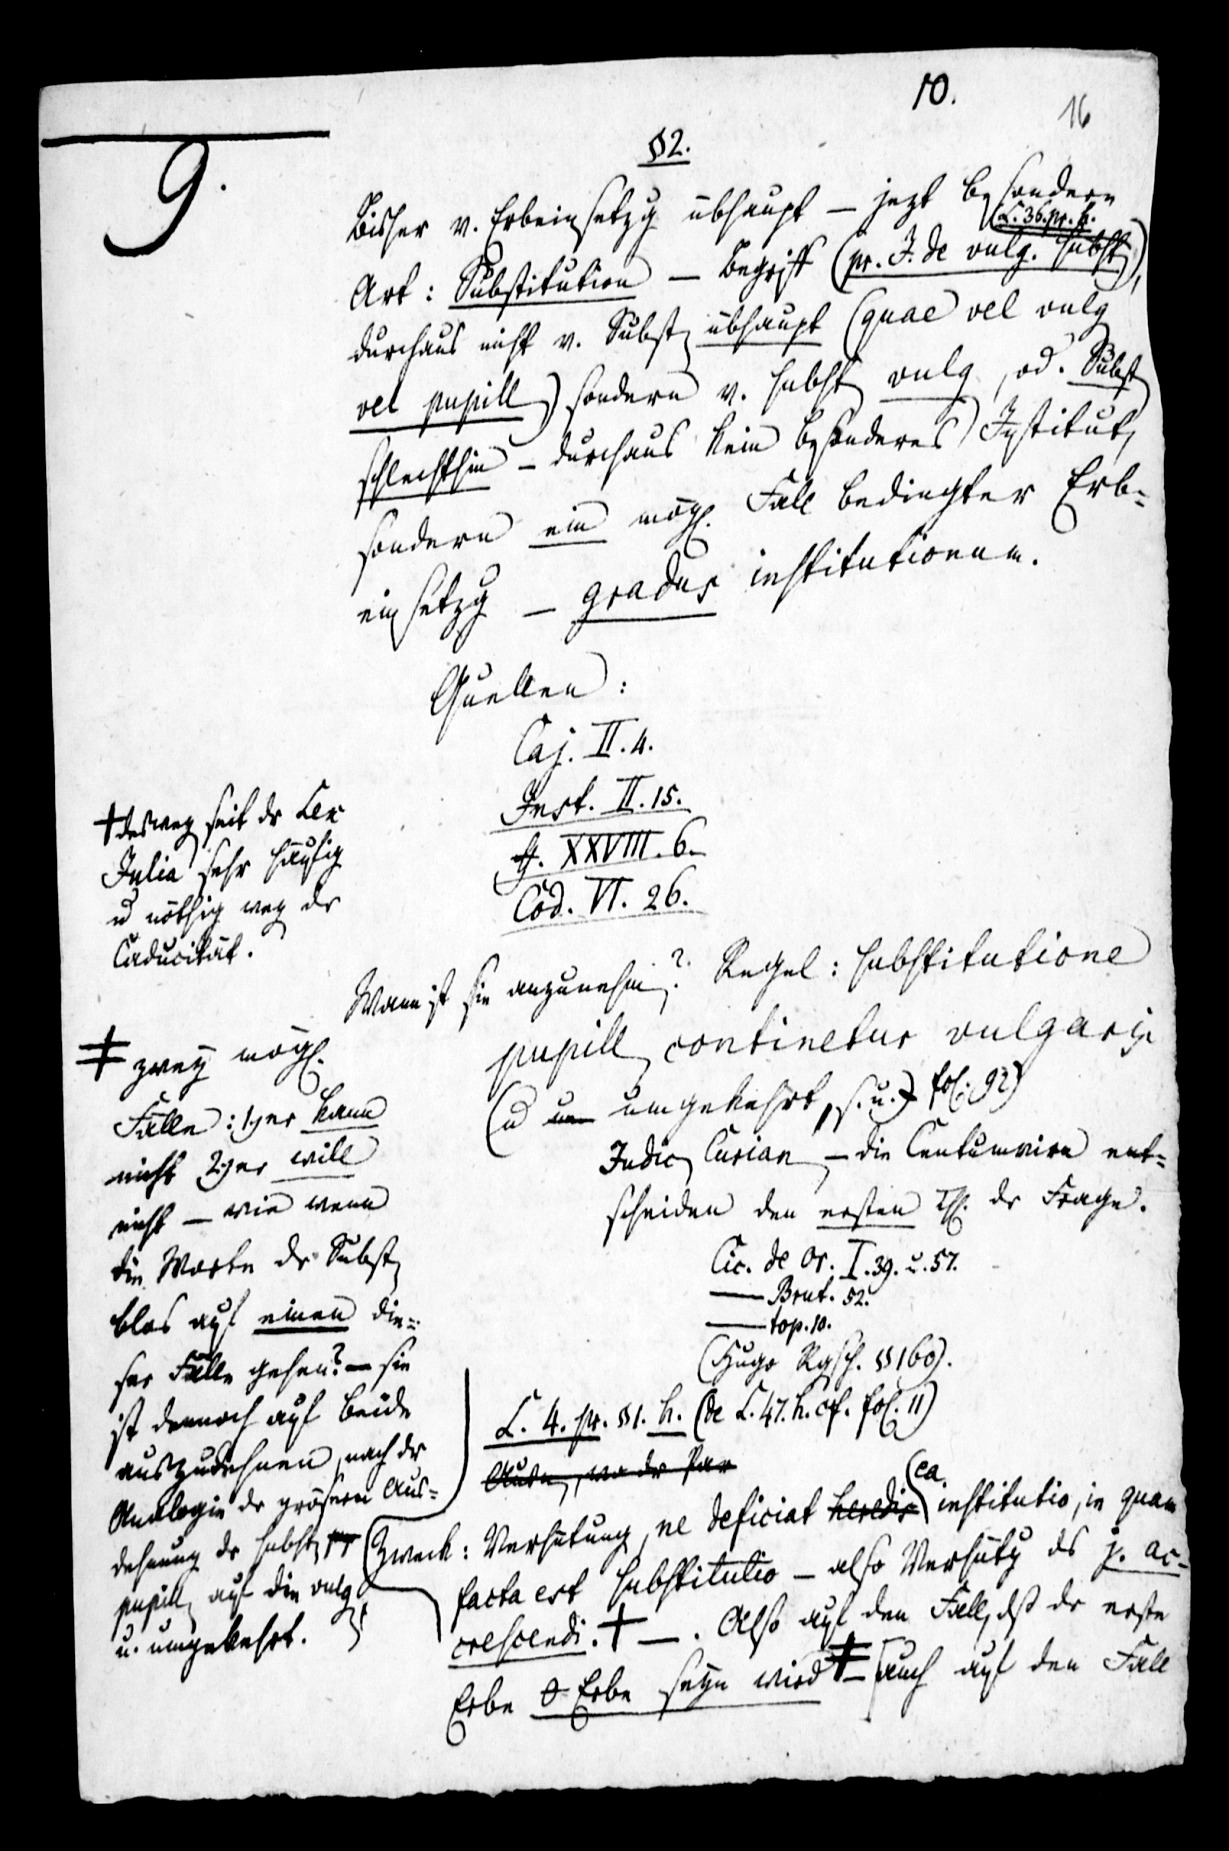 10.
16
9.
§2.
Bisher v. Erbeinsetzg übhaupt — jezt besondere
L. 36. pr. h.
Art: Substitution — Begriff (pr. J. de vulg. subst),
durchaus nicht v. Subst übhaupt (quae vel vulg
vel pupill) sondern v. subst vulg, od. Subst
schlechthin — durchaus kein besonderes Institut,
sondern ein mögl. Fall bedingter Erb=
einsetzg — gradus institutionum.
Quellen:
Caj. II. 4.
Inst. II. 15.
XXVIII. 6.
Cod. VI. 26.
Wann ist sie anzunehm? Regel: substitutione
pupill continetur vulgaris
(u umgekehrt, s. u. fol. 92)
Judic Curian — die Centumvirn ent=
scheiden den ersten Th. dr Frage.
Cic. de or. I. 39. u. 57.
— Brut. 52.
— top. 10.
(Hugo Rgsch. §160).
L. 4. pr. §1. h. (de L. 47. h. cf. fol. 11)
Zweck: Verhütung, ne deficiat heredis ea institutio, in quam
facta est substitutio — also Verhütg ds j. ac=
crescendi. † —. Also auf den Fall, dß dr erste
Erbe 0 Erbe seyn wird ‡ — auch auf den Fall
† deswegen seit dr Lex
Julia sehr häufig
u nöthig weg dr
Caducität.
‡ zwey mögl.
Fälle: 1) er kann
nicht 2) er will
nicht — wie wenn
die Worte dr Subst
blos auf einen die=
ser Fälle gehen? — sie
ist dennoch auf beide
auszudehnen, nach dr
Analogie dr größern Aus=
dehnung dr subst
pupill auf die vulg
u. umgekehrt.